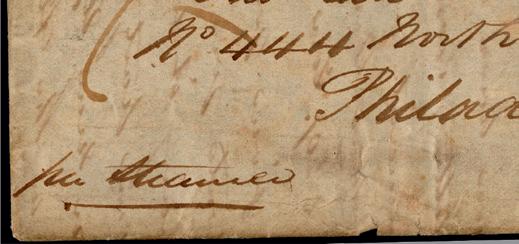 No 444 North
Philad
per Steamer